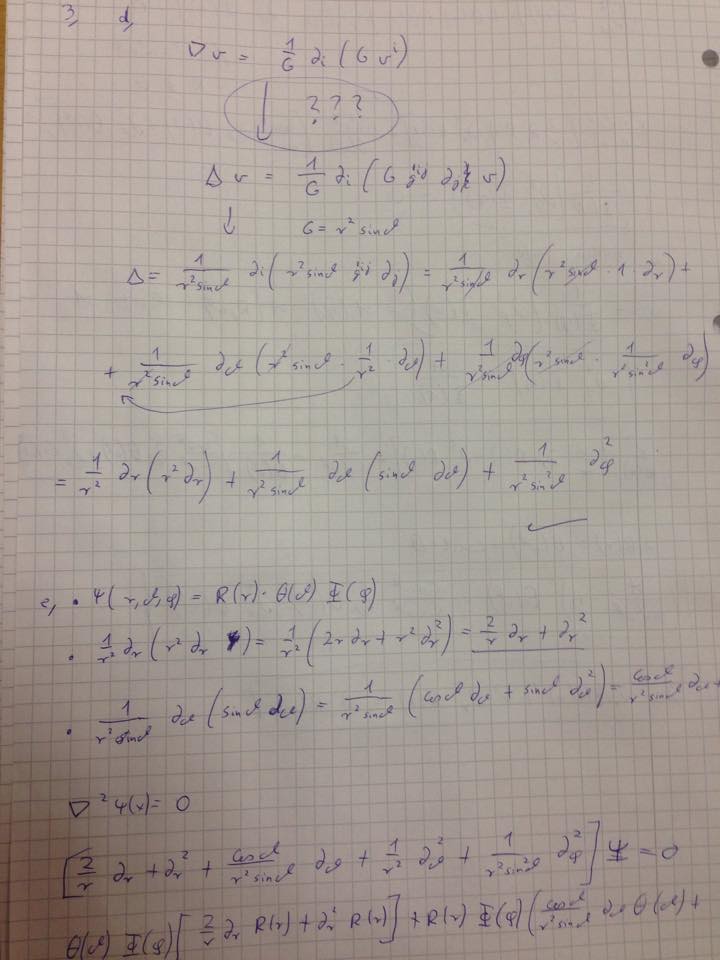 3, d,
∇v = 1/G ∂i (G vⁱ)
↓ ???
Δv = 1/G ∂i (G gⁱʲ ∂j v)
↓ G = r² sinϑ
Δ = 1/(r² sinϑ) ∂i (r² sinϑ gⁱʲ ∂j) = 1/(r² sinϑ) ∂r (r² sinϑ · 1 · ∂r) +
+ 1/(r² sinϑ) ∂ϑ (r² sinϑ · 1/r² · ∂ϑ) + 1/(r² sinϑ) ∂φ (r² sinϑ · 1/(r² sin²ϑ) ∂φ)
= 1/r² ∂r (r² ∂r) + 1/(r² sinϑ) ∂ϑ (sinϑ ∂ϑ) + 1/(r² sin²ϑ) ∂φ²
e, • Ψ(r,ϑ,φ) = R(r)·θ(ϑ) Φ(φ)
• 1/r² ∂r (r² ∂r ) = 1/r² (2r ∂r + r² ∂r²) = 2/r ∂r + ∂r²
• 1/(r² sinϑ) ∂ϑ (sinϑ ∂ϑ) = 1/(r² sinϑ) (cosϑ ∂ϑ + sinϑ ∂ϑ²) = cosϑ/(r² sinϑ) ∂ϑ +
∇² Ψ(x) = 0
[2/r ∂r + ∂r² + cosϑ/(r² sinϑ) ∂ϑ + 1/r² ∂ϑ² + 1/(r² sin²ϑ) ∂φ²] Ψ = 0
θ(ϑ) Φ(φ) [2/r ∂r R(r) + ∂r² R(r)] + R(r) Φ(φ) (cosϑ/(r² sinϑ) ∂ϑ θ(ϑ) +